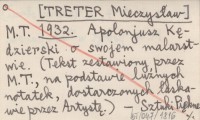 [TRETER Mieczysław]
M.T. 1932. Apolonjusz Kę-
dzierski o swojem malarst-
wie. (Tekst zestawiony przez
M.T., na podstawie luźnych
notatek, dostarczonych łaska-
wie przez Artystę.) — Sztuki Piękne